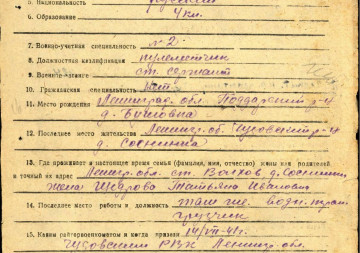 5. Национальность русский
6. Образование 4 кл.
7. Военно-учетная специальность №2
8. Должностная квалификация пулеметчик
9. Военное звание ст. сержант
10. Гражданская специальность
11. Место рождения Ленинград. обл. Поддорский р-н
д.
12. Последнее место жительства Ленингр. об. Чудовский р-н
д. Соснинка
13. Где проживает в настоящее время семья (фамилия, имя, отчество) жены или родителей
и точный их адрес Ленигр. обл. ст. Волхов д. Соснинка
жена Татьяна Ивановна
14. Последнее место работы и должность там же водн. тран.
грузчик
15. Каким райгорвоенкоматом и когда призван 14/VII-41г.
Чудовским РВК Ленингр. обл.